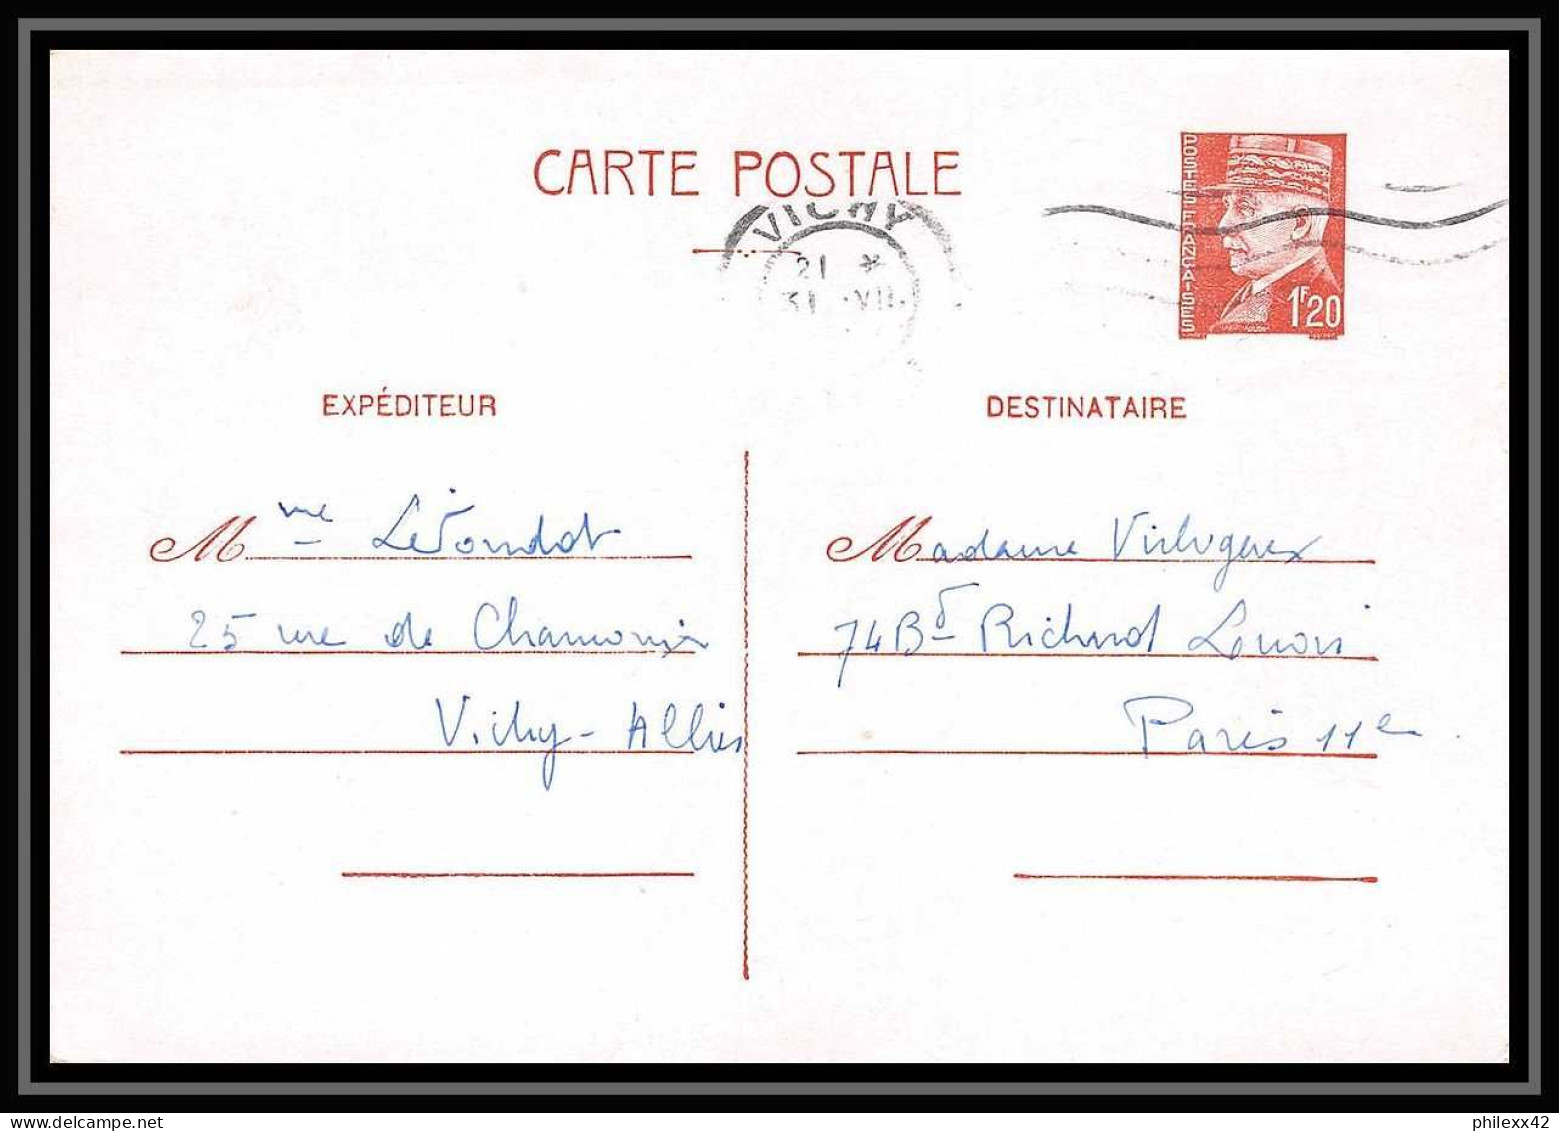 CARTE POSTALE
POSTES FRANÇAISES
1F20
VICHY
21 *
31 VII
EXPÉDITEUR
DESTINATAIRE
Mme
25 rue de Chamonix
Vichy - Allier
Madame
74 Bd Richard Lenoir
Paris 11e
delcampe.net
philexx42